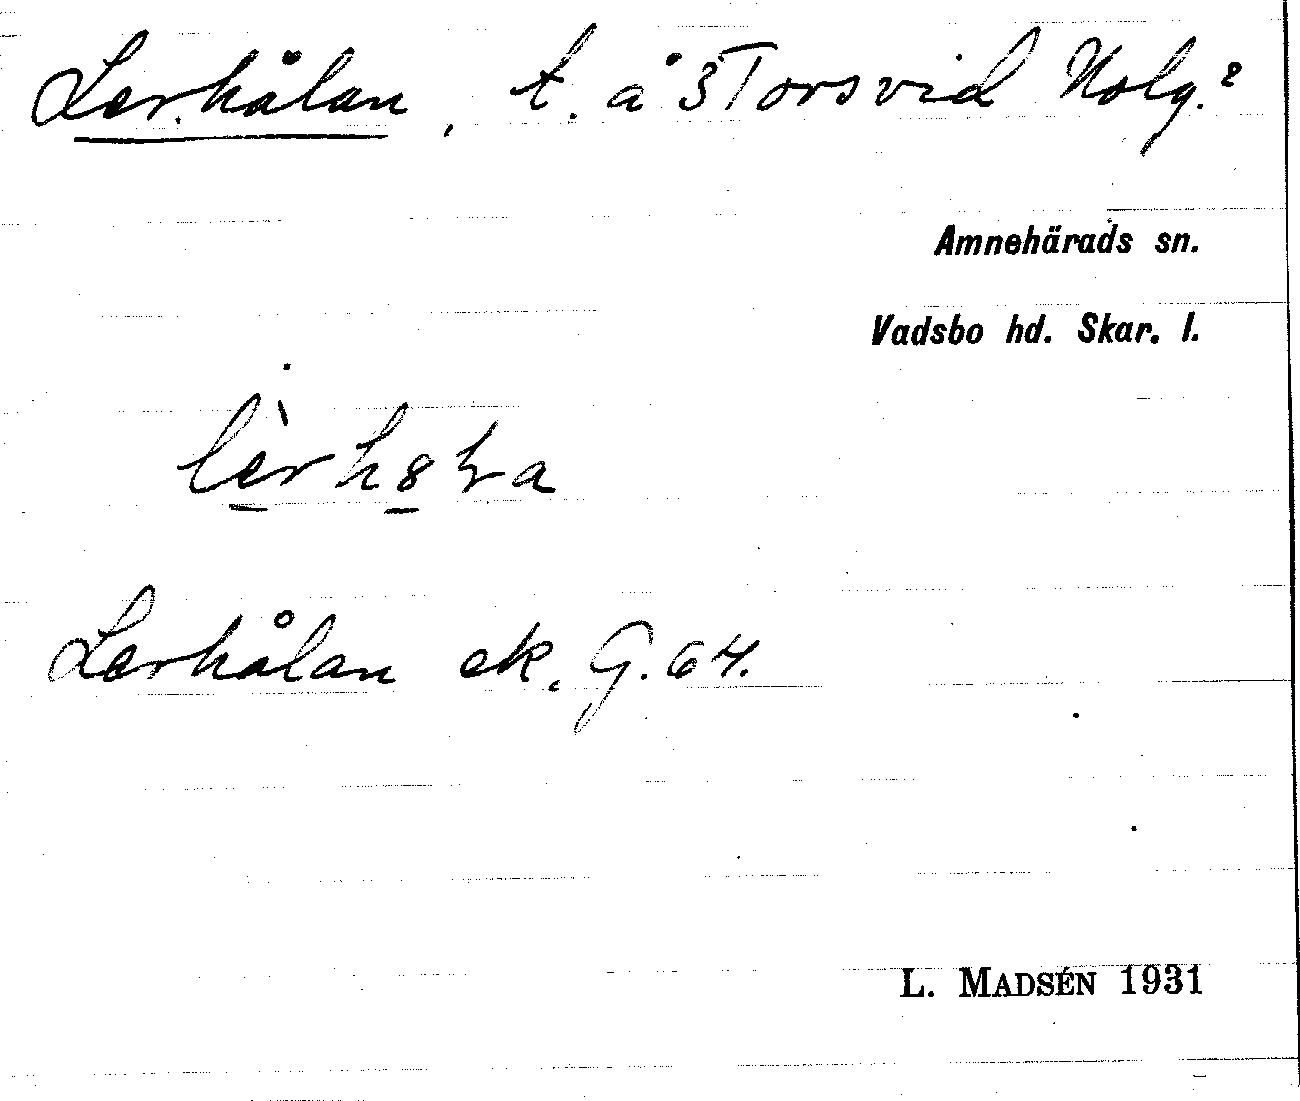 Lerhålan, t. å 3 Torsvid Nolg.
Amnehärads sn.
Vadsbo hd. Skar. l.
Lerhålan ek. G. 64.
L. MADSÉN 1931